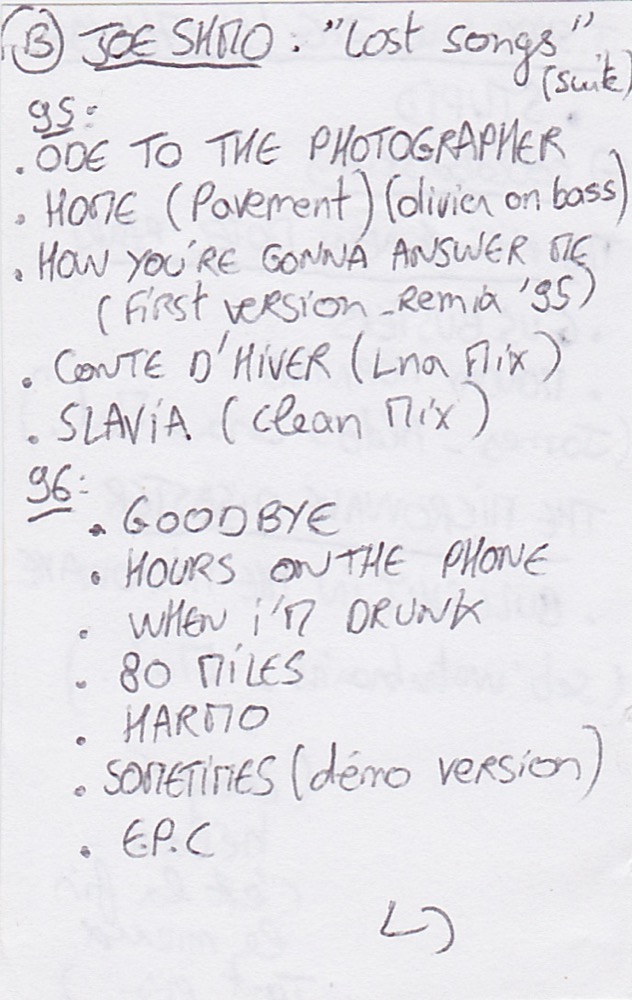 B JOE SHMO. "Lost songs"
(suite)
95:
. ODE TO THE PHOTOGRAPHER
. HOME (Pavement) (olivier on bass)
. HOW YOU'RE GONNA ANSWER ME
(First version - Remix '95)
. CONTE D'HIVER (Lna Mix)
. SLAViA (clean Mix)
96:
. GOODBYE
. HOURS ON THE PHONE
. WHEN i'M DRUNK
. 80 MiLES
. HARMO
. SOMETiMES (démo version)
. EP.C